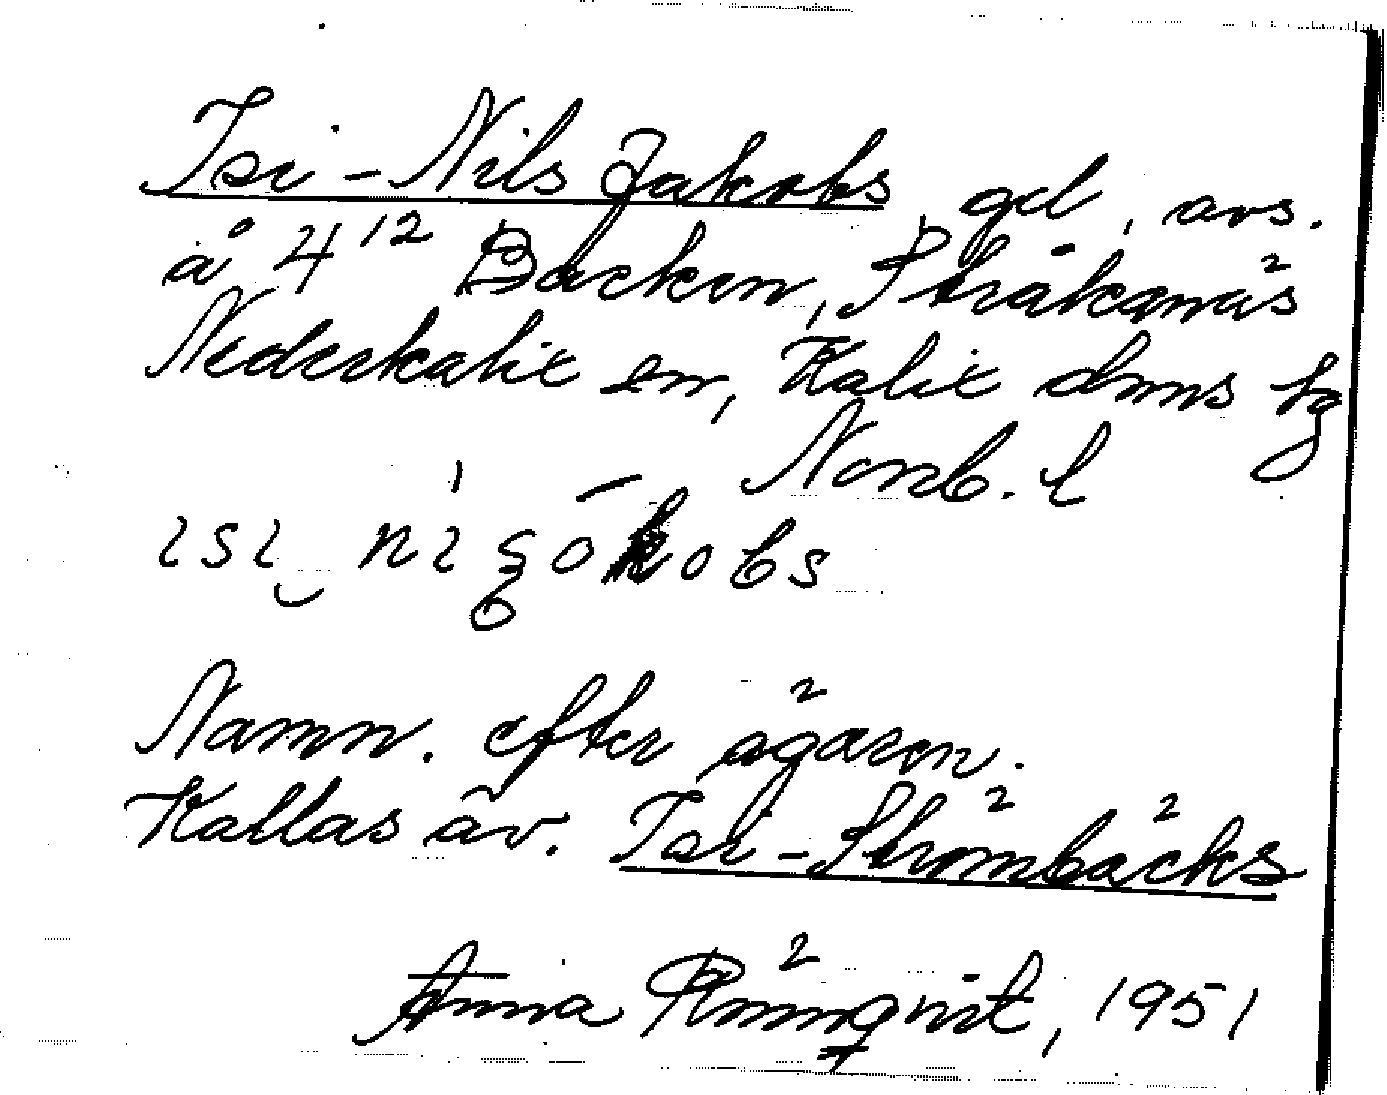 Isi-Nils Jakobs, gd, avs.
å 4¹² Backen, Stråkanäs
Nederkalix sn, Kalix dmns tg
Norrb. l
Namn. efter ägaren.
Kallas äv. Isi-Strömbäcks
Anna Rönnqvist, 1951